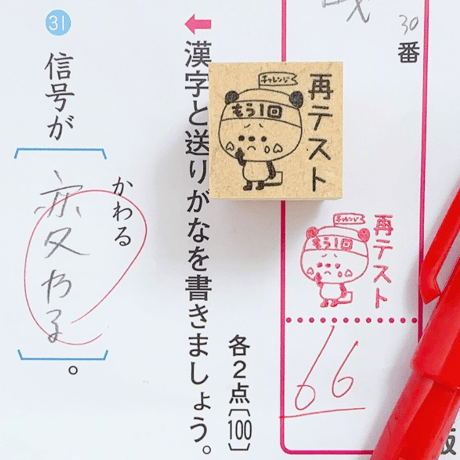 30番
再テスト
チャレンジ
もう1回
再テスト
チャレンジ
もう1回
66
←漢字と送りがなを書きましょう。
各2点〔100〕
31
信号が
かわる
変わる
。